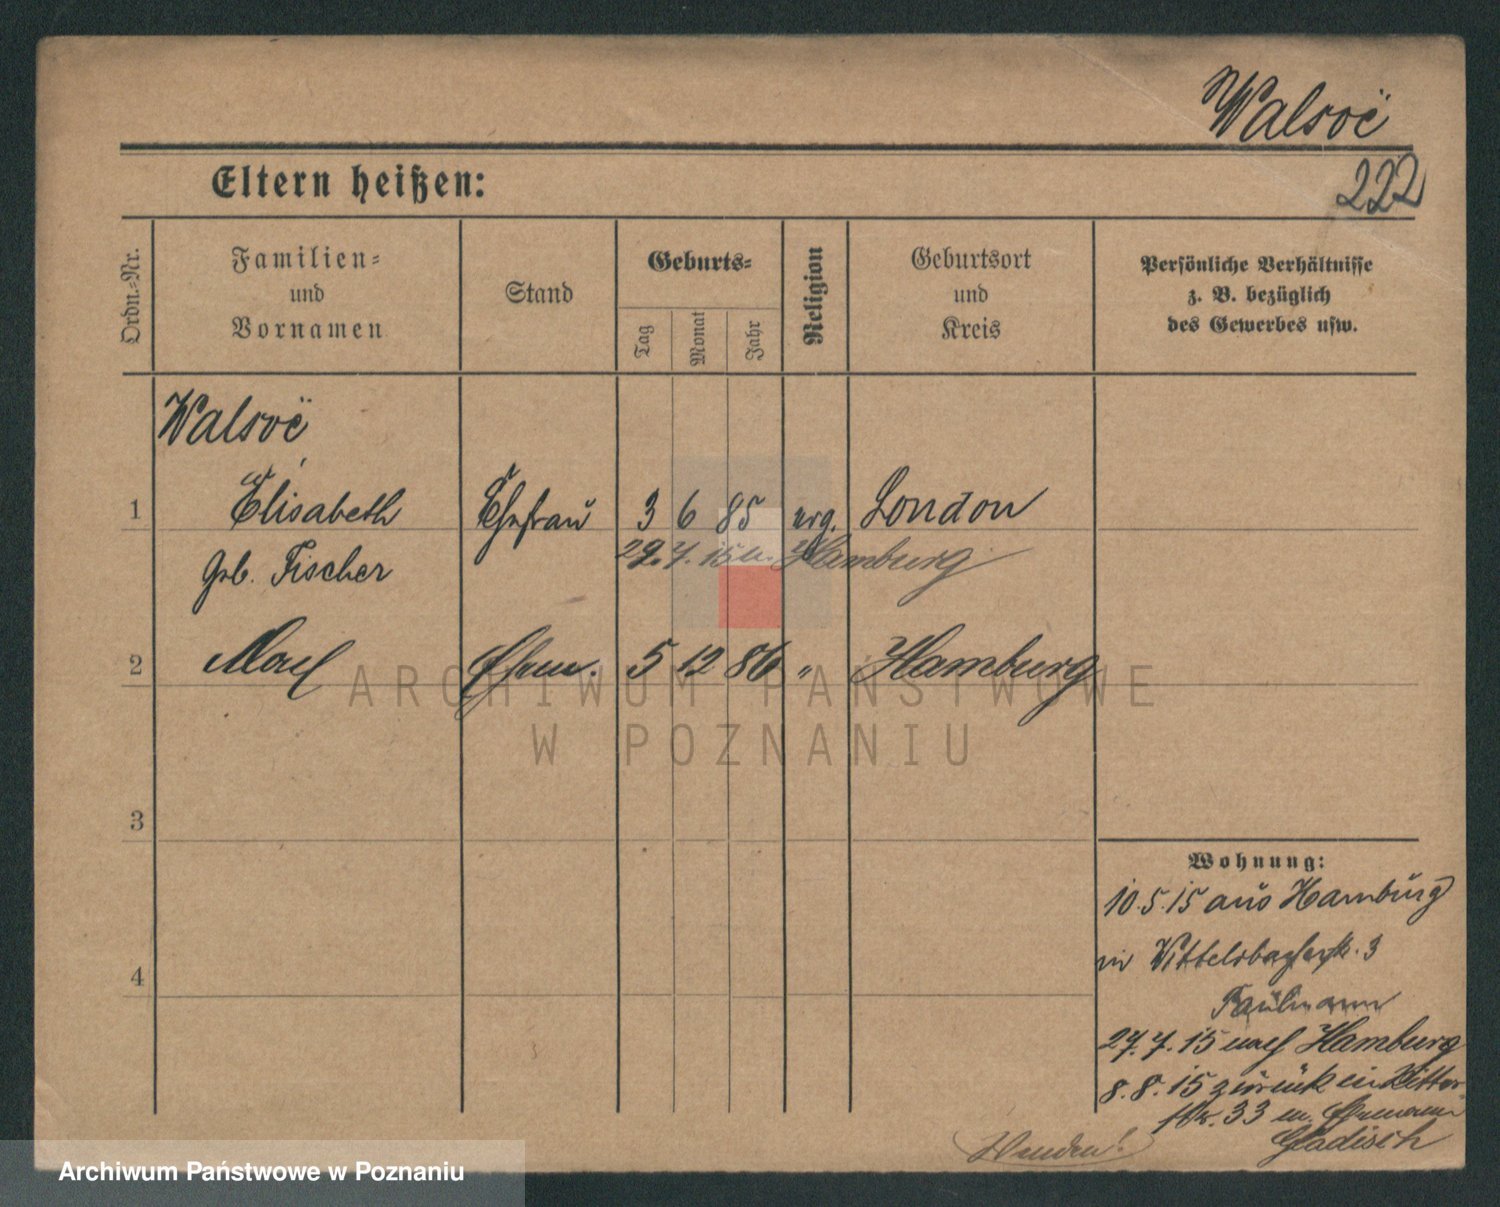 Walsoë
222
Eltern heißen:
Ordn.-Nr.
Familien-
und
Vornamen
Stand
Geburts-
Tag
Monat
Jahr
Religion
Geburtsort
und
Kreis
Persönliche Verhältnisse
z. B. bezüglich
des Gewerbes usw.
Walsoë
1 Elisabeth Ehefrau 3 6 85 evg. London
geb. Fischer
27.7.15 n. Hamburg
2 Ehem. 5 12 86 " Hamburg
3
4
Wohnung:
10.5.15 aus Hamburg
in Wittelsbacherstr. 3
Paulmann
27.7.15 nach Hamburg
8.8.15 zurück in Ritter
str. 33 m. Ehemann
Gladisch
Wenden!
ARCHIWUM PAŃSTWOWE
W POZNANIU
Archiwum Państwowe w Poznaniu